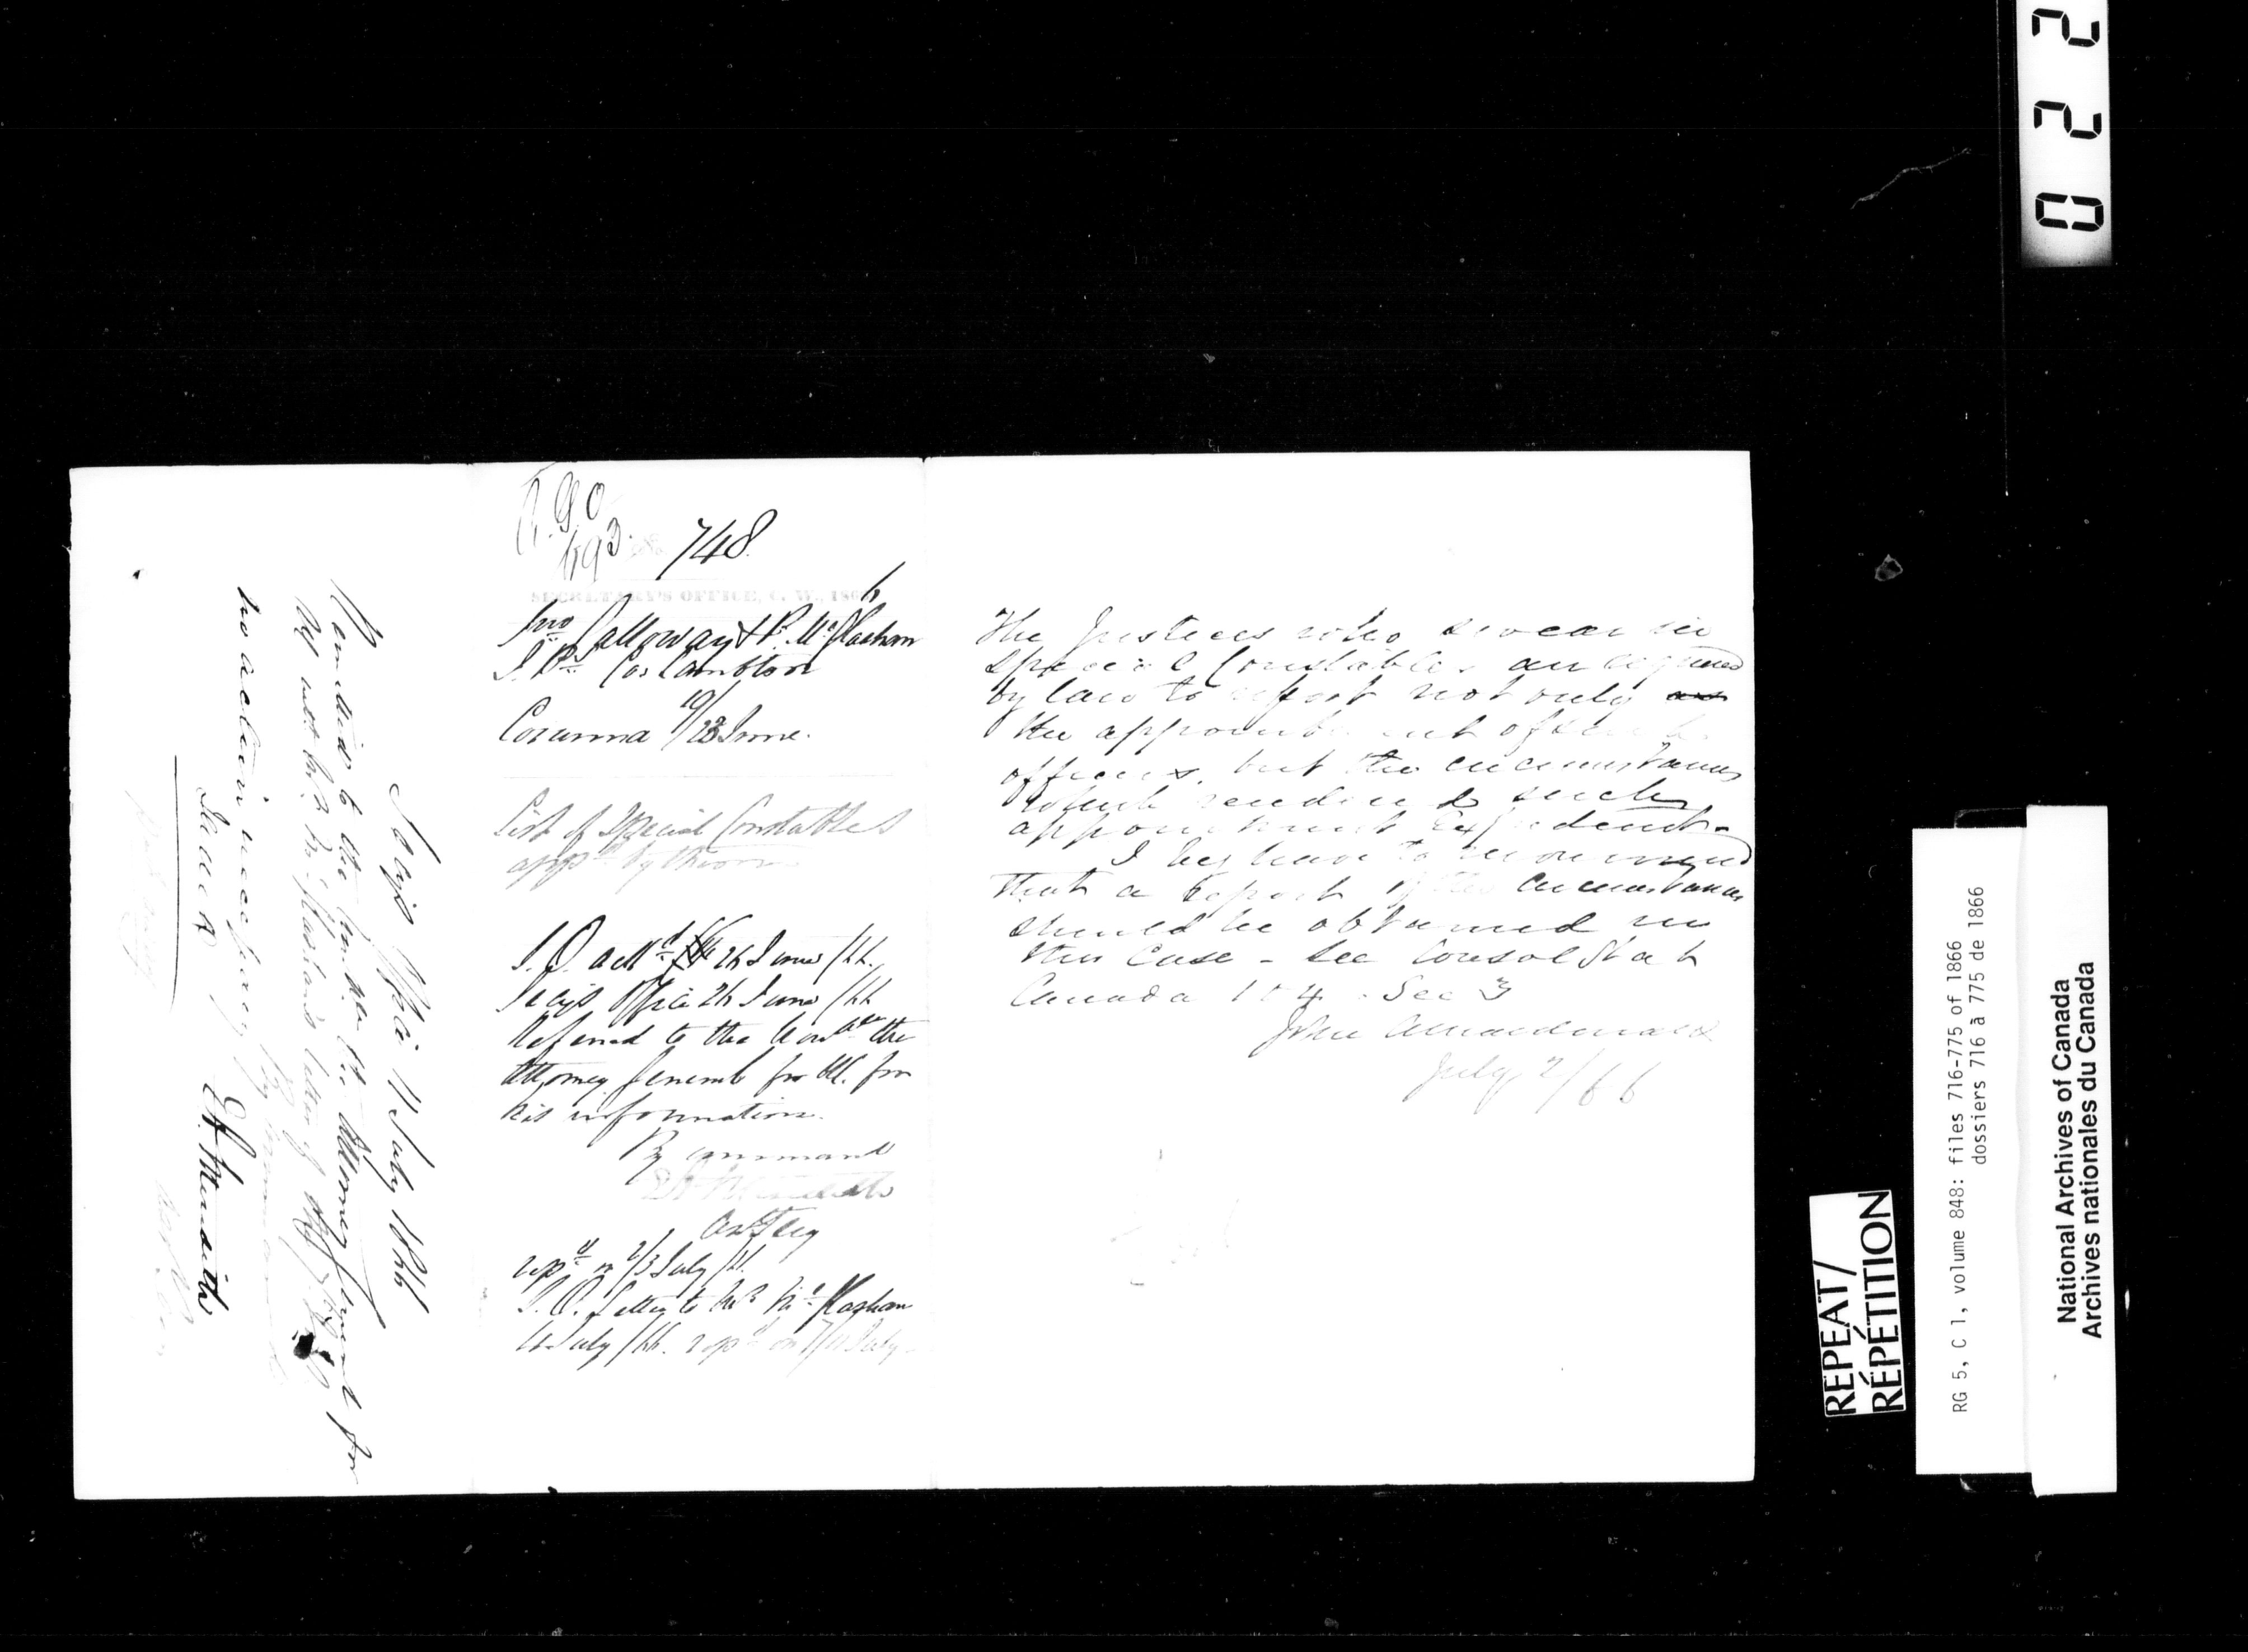 748.
SECRETARY'S OFFICE, C. W., 1866
Jno Galloway & P. McGlashan
J.P.s Co. Lambton
Corunna 19/23 June.
List of Special Constables
appd by them
26 June /66.
Secy's Office 26 June /66
Referred to the Honble the
Attorney General for U.C. for
his information.
By command
Asst Secy
2/3 July /66.
Letter to Mr McGlashan
July /66.
The Justices who swear in
special Constables are required
by law to report not only
the appointment of such
officers, but the circumstances
which rendered such
appointment expedient.
I beg leave to recommend
that a Report of the circumstances
should be obtained in
this Case - See Consol Stat
Canada 104. Sec 3
John A Macdonald
July 2/66
Secy's Office 11 July 1866
to the Honble the Attorney General for
McGlashan's letter of
By command
E. A. Meredith
no action necessary
022
REPEAT/
RÉPÉTITION
RG 5, C 1, volume 848: files 716-775 of 1866
dossiers 716 à 775 de 1866
National Archives of Canada
Archives nationales du Canada